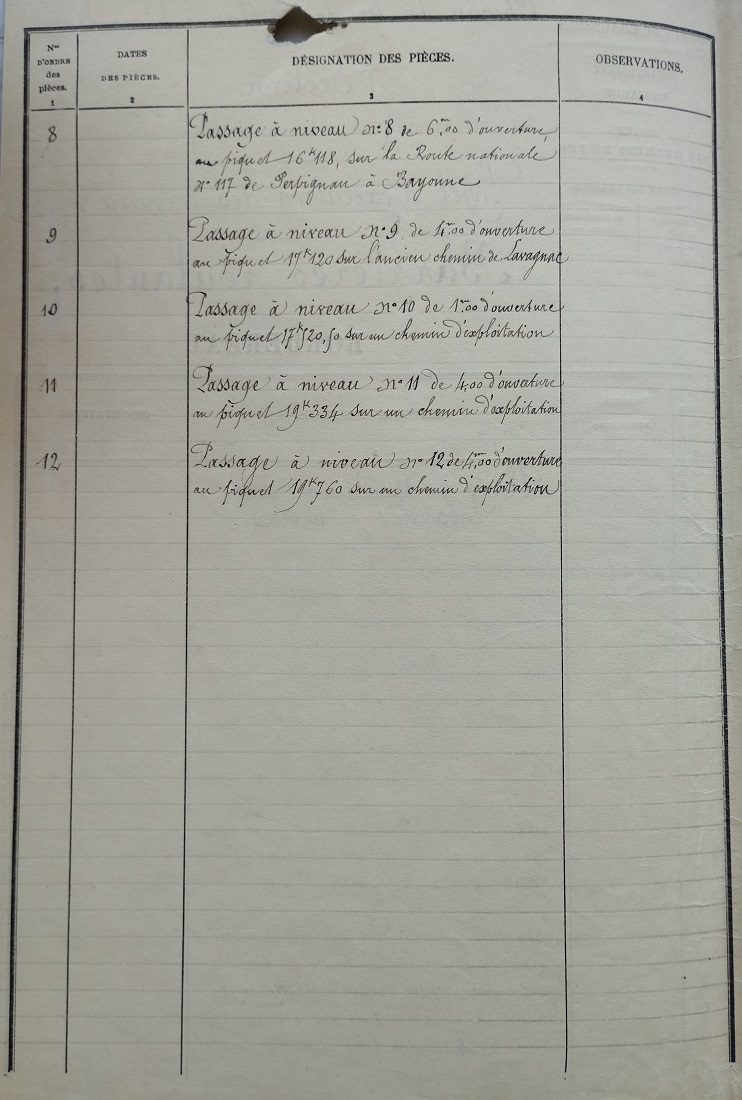 Nos D'ORDRE des pièces.
DATES DES PIÈCES.
DÉSIGNATION DES PIÈCES.
OBSERVATIONS.
1 2 3 4
8 Passage à niveau No 8 de 6m,00 d'ouverture
au piquet 16k118, sur la Route nationale
No 117 de Perpignan à Bayonne
9 Passage à niveau No 9, de 4m,00 d'ouverture
au piquet 17k120 sur l'ancien chemin de Lavagnac
10 Passage à niveau No 10 de 1m,00 d'ouverture
au piquet 17k520,50 sur un chemin d'exploitation
11 Passage à niveau No 11 de 4,00 d'ouverture
au piquet 19k334 sur un chemin d'exploitation
12 Passage à niveau No 12 de 4m,00 d'ouverture
au piquet 19k760 sur un chemin d'exploitation